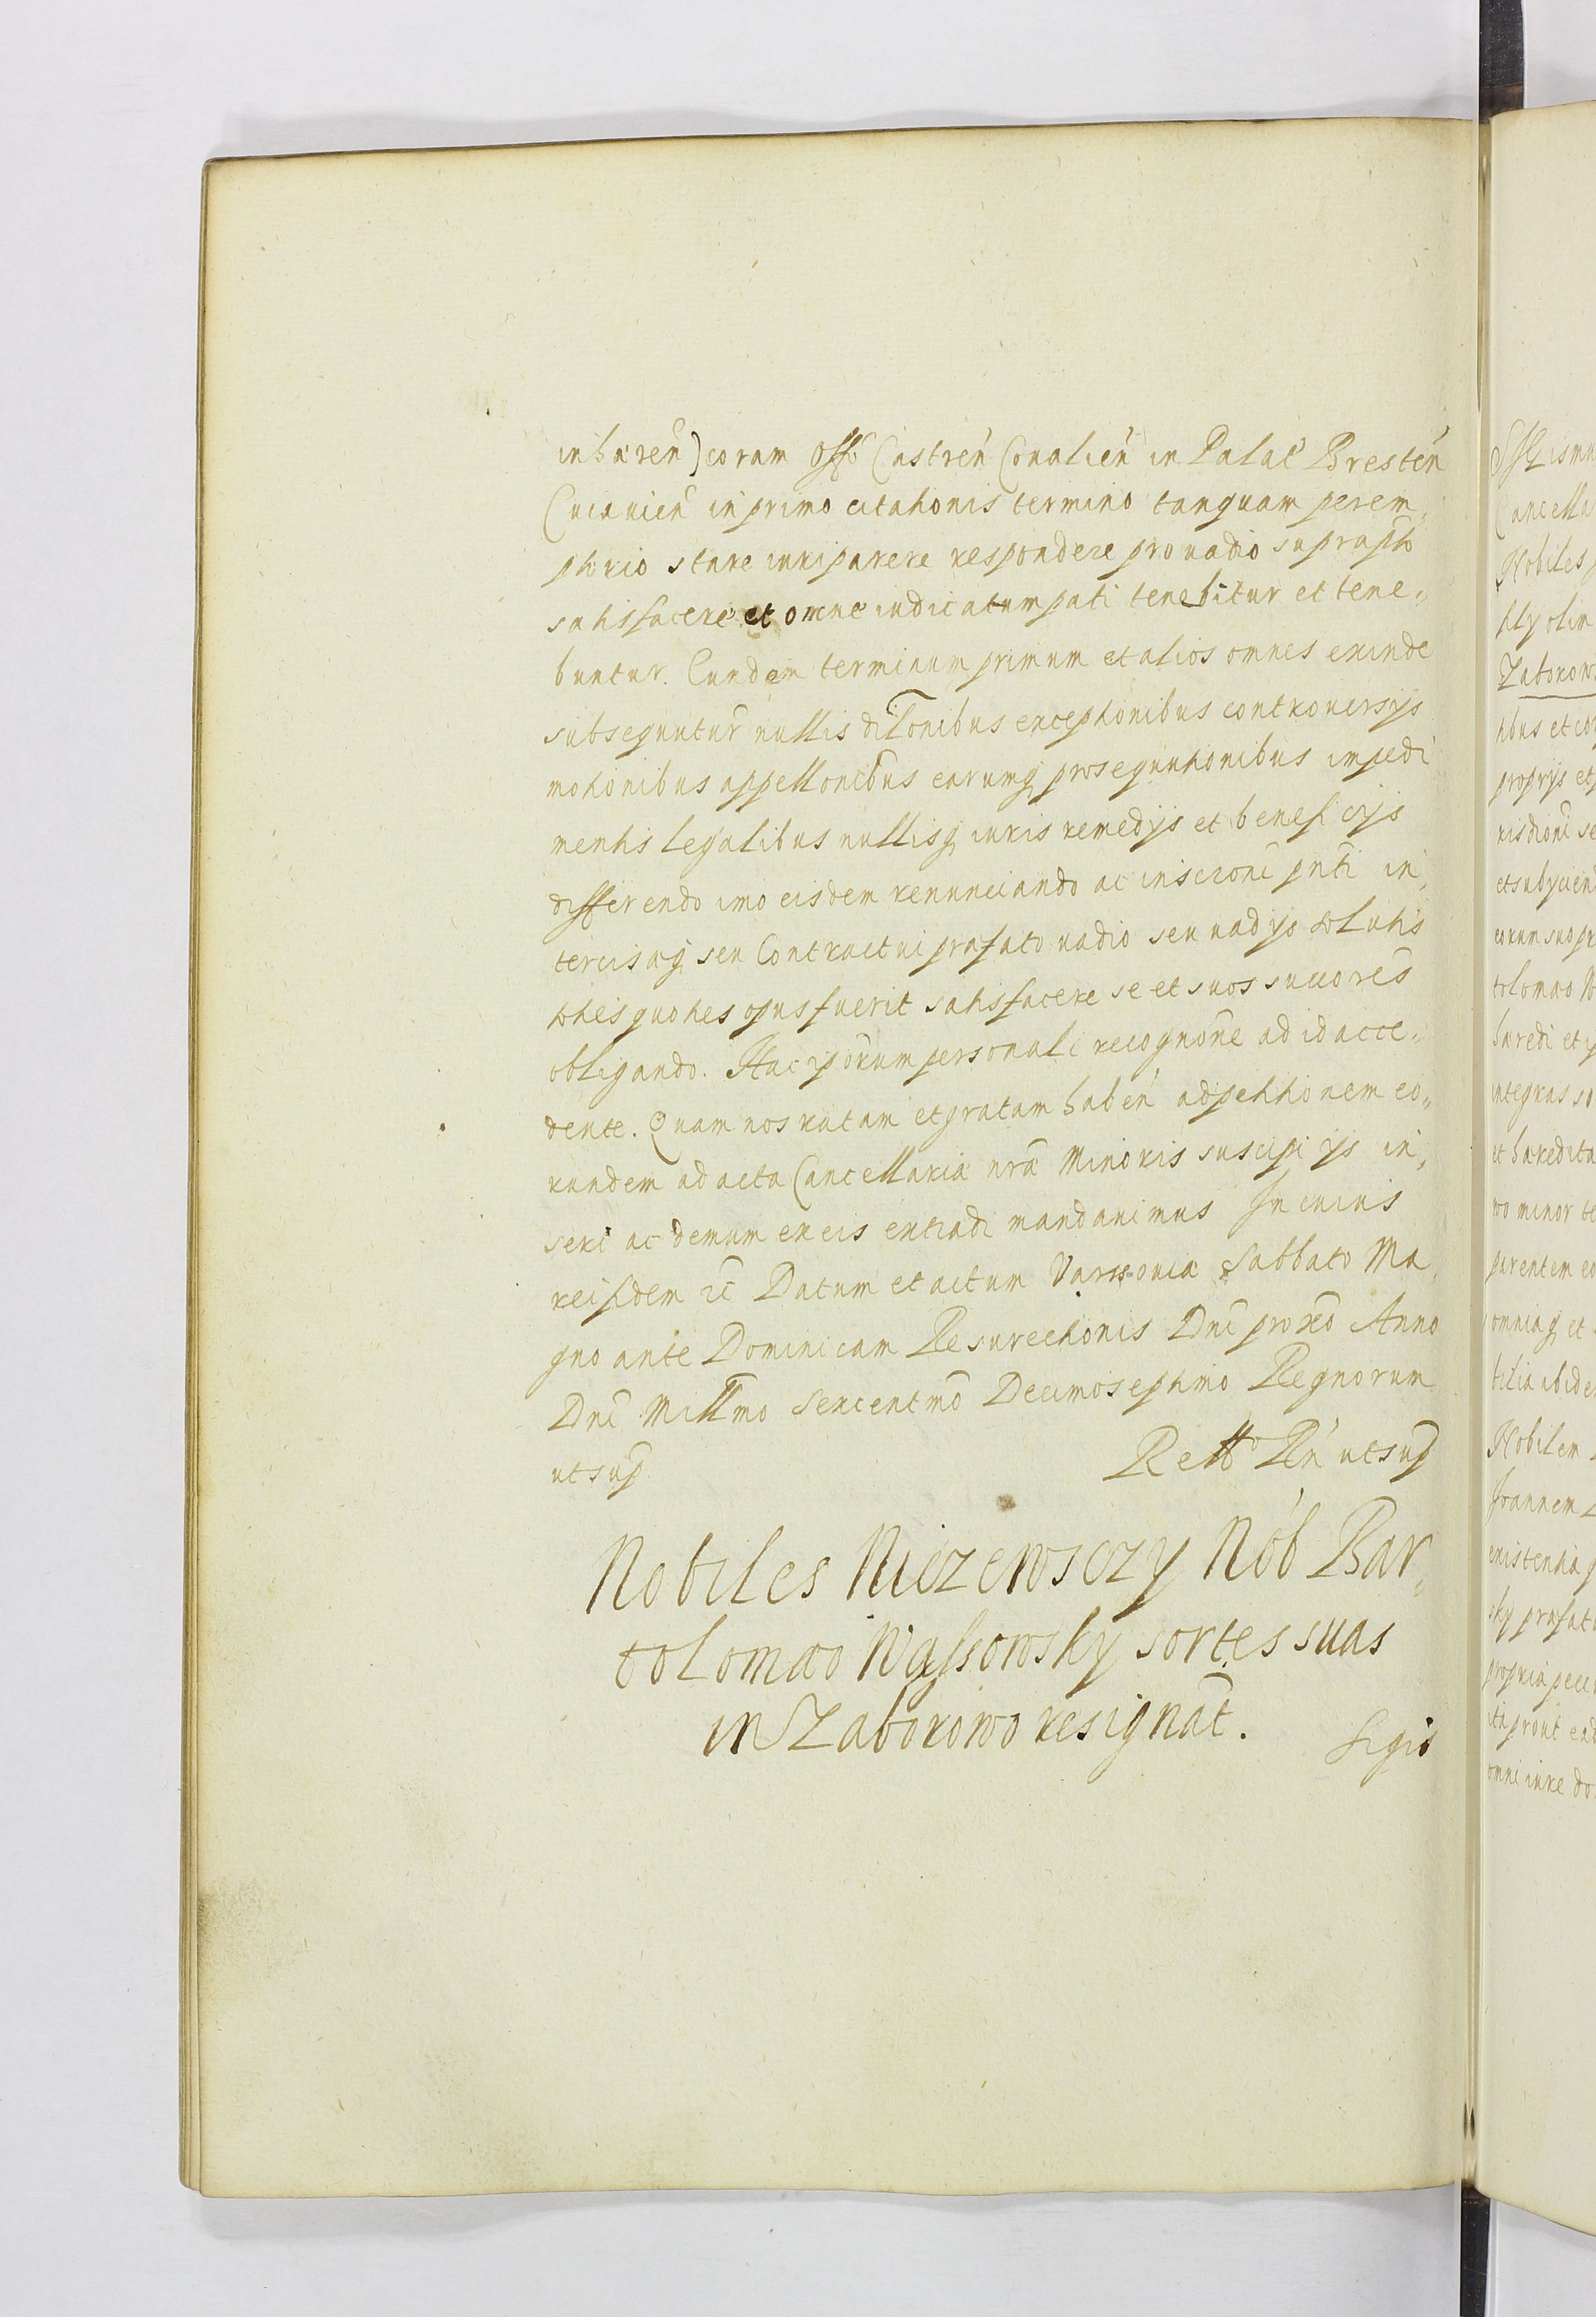 inhæren̄) coram Offo Castren̄ Conalien̄ in Palat̄ Bresten̄
Cuiauien̄ in primo citationis termino tanquam perem„
ptorio stare iuri parere respondere pro uadio suprapto
satisfacere et omne iudicatum pati tenebitur et tene„
buntur. Eundem terminum primum et alios omnes exinde
subsequutur̄ nullis dil̄onibus exceptionibus controuersijs
motionibus appell̄onibus earumq prosequutionibus impedi
mentis legalibus nullisq iuris remedijs et beneficijs
differendo imo eisdem renunciando ac inscr̄oni pn̄ti in„
tercisæq seu Contractui præfato uadio seu uadijs solutis
toties quoties opus fuerit satisfacere se et suos succ̄ores
obligando. Hac ip̄orum personali recognōne ad id acce„
dente. Quam nos ratam et gratam haben̄ ad petitionem eo„
rundem ad acta Cancellariæ nr̄æ Minoris suscipi ijs in„
seri ac demum ex eis extradi mandauimus In cuius
rei fidem etc̄ Datum et actum Varssouiæ Sabbato Ma„
gno ante Dominicam Resurectionis Dn̄i prox̄o Anno
Dn̄i Mill̄mo Sexcentmō Decimoseptimo Regnorum
ut sup̄
Rel̄to Rn̄ ut sup̄
Nobiles Niezewsczy Nob̄ Bar„
tolomæo Wassowsky sortes suas
in Zaborowo resignāt.
Sigis
Cancella
Nobiles
olim
Zaborows
tibus et cor
proprijs et
risdioni se
et subyciend
eorum suo pr
tolomæo W
hæredi et
integras so
et hæredita
wo minor te
parentem eo
omniaq et
tilia ibide
Nobilem
Joannem
existentia
sky præfat
propria pecu
ita prout ead
omni iure do